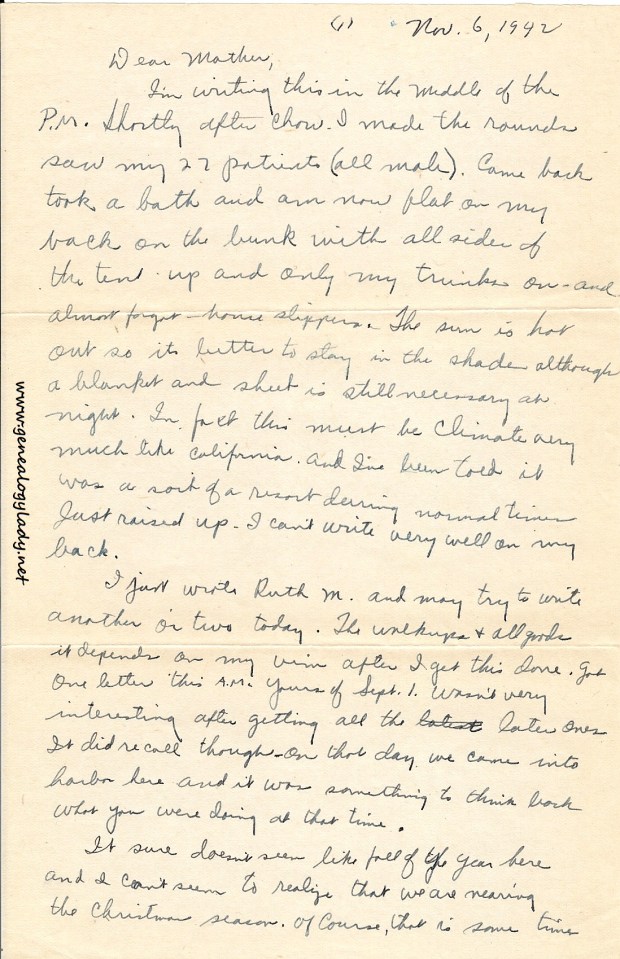 (1) Nov. 6, 1942
Dear Mother,
I'm writing this in the middle of the
P.M. Shortly after chow. I made the rounds
saw my 27 patients (all male). Came back
took a bath and am now flat on my
back on the bunk with all sides of
the tent up and only my trunks on - and
almost forgot - house slippers. The sun is hot
out so its better to stay in the shade although
a blanket and sheet is still necessary at
night. In fact this must be climate very
much like California. And I've been told it
was a sort of a resort during normal times
Just raised up - I can't write very well on my
back.
I just wrote Ruth M. and may try to write
another or two today. The Walkups & Allgoods
it depends on my vim after I get this done. Got
one letter this A.M. yours of Sept. 1. Wasn't very
interesting after getting all the latest later ones
It did recall though - on that day we came into
harbor here and it was something to think back
what you were doing at that time.
It sure doesn't seem like fall of the year here
and I can't seem to realize that we are nearing
the Christmas season. Of course, that is some time
www.genealogylady.net